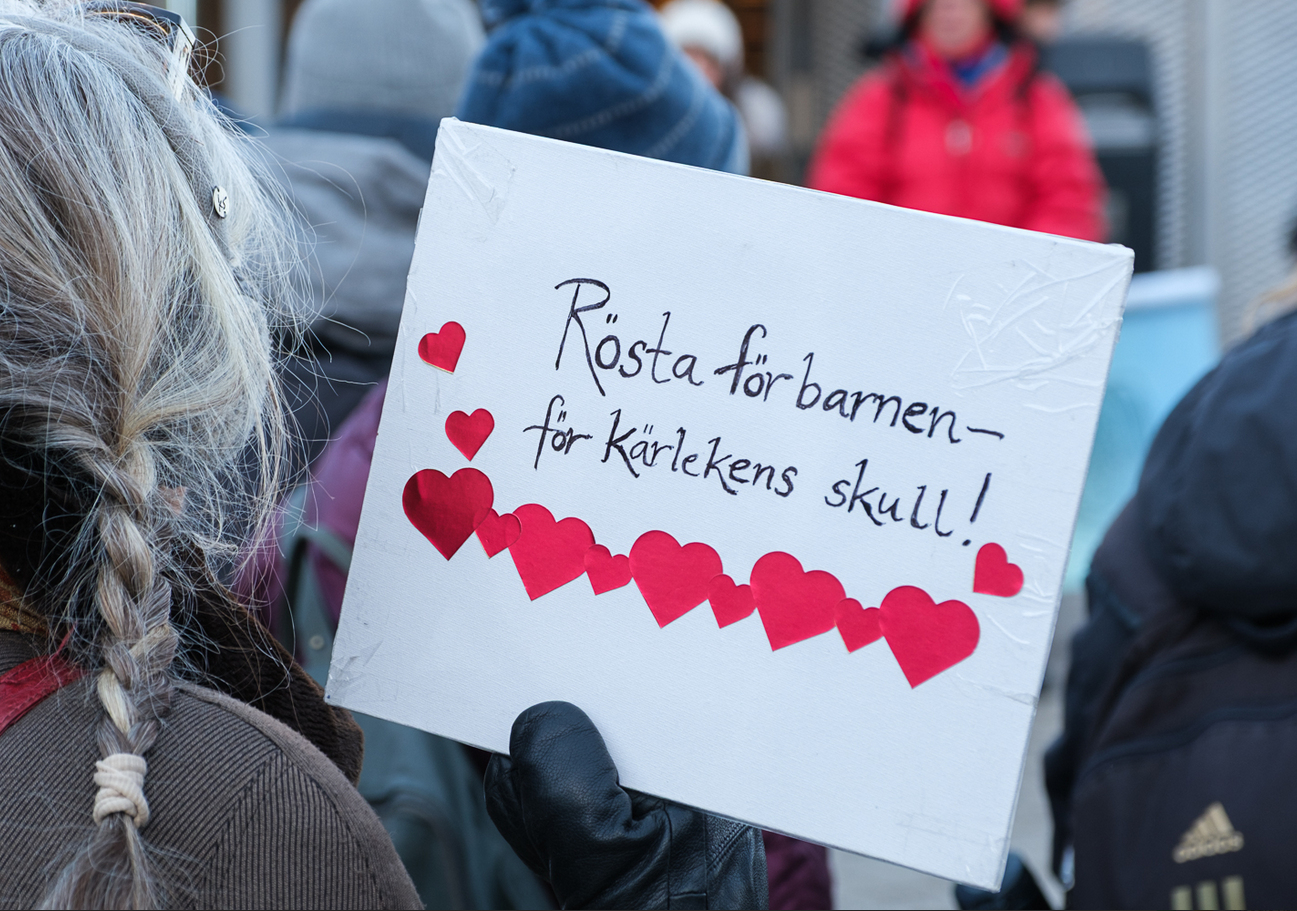 Rösta för barnen–
för kärlekens skull!
adidas